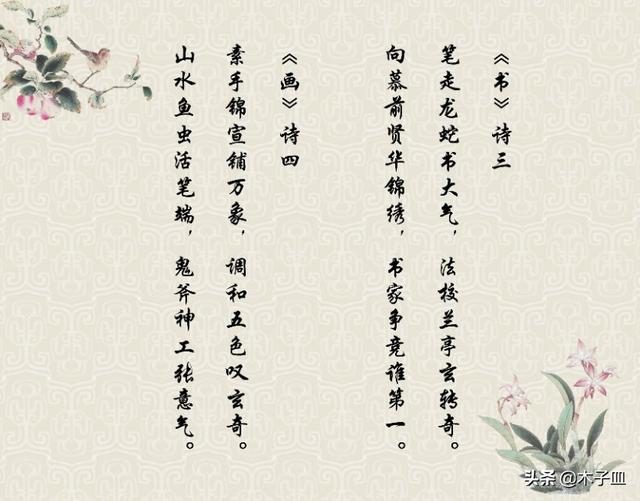 《书》诗三
笔走龙蛇书大气，法校兰亭玄转奇。
向慕前贤华锦绣，书家争竞谁第一。
《画》诗四
素手锦宣铺万象，调和五色叹玄奇。
山水鱼虫活笔端，鬼斧神工张意气。
头条 @木子皿